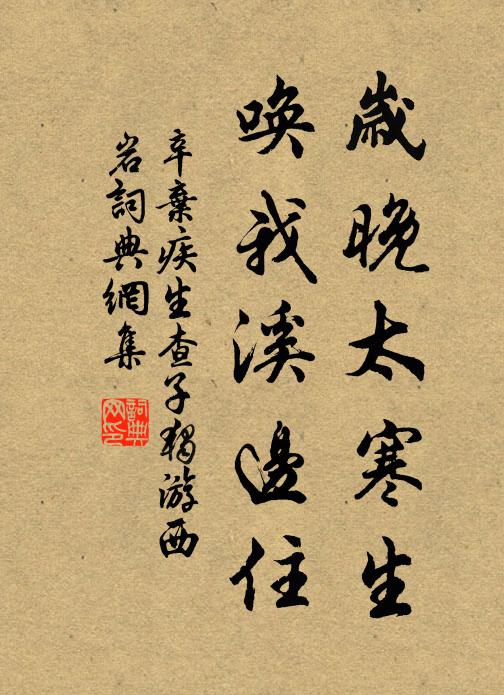 歲晚太寒生
喚我溪邊住
辛棄疾生查子獨游西
岩詞典網集
詞典
网印